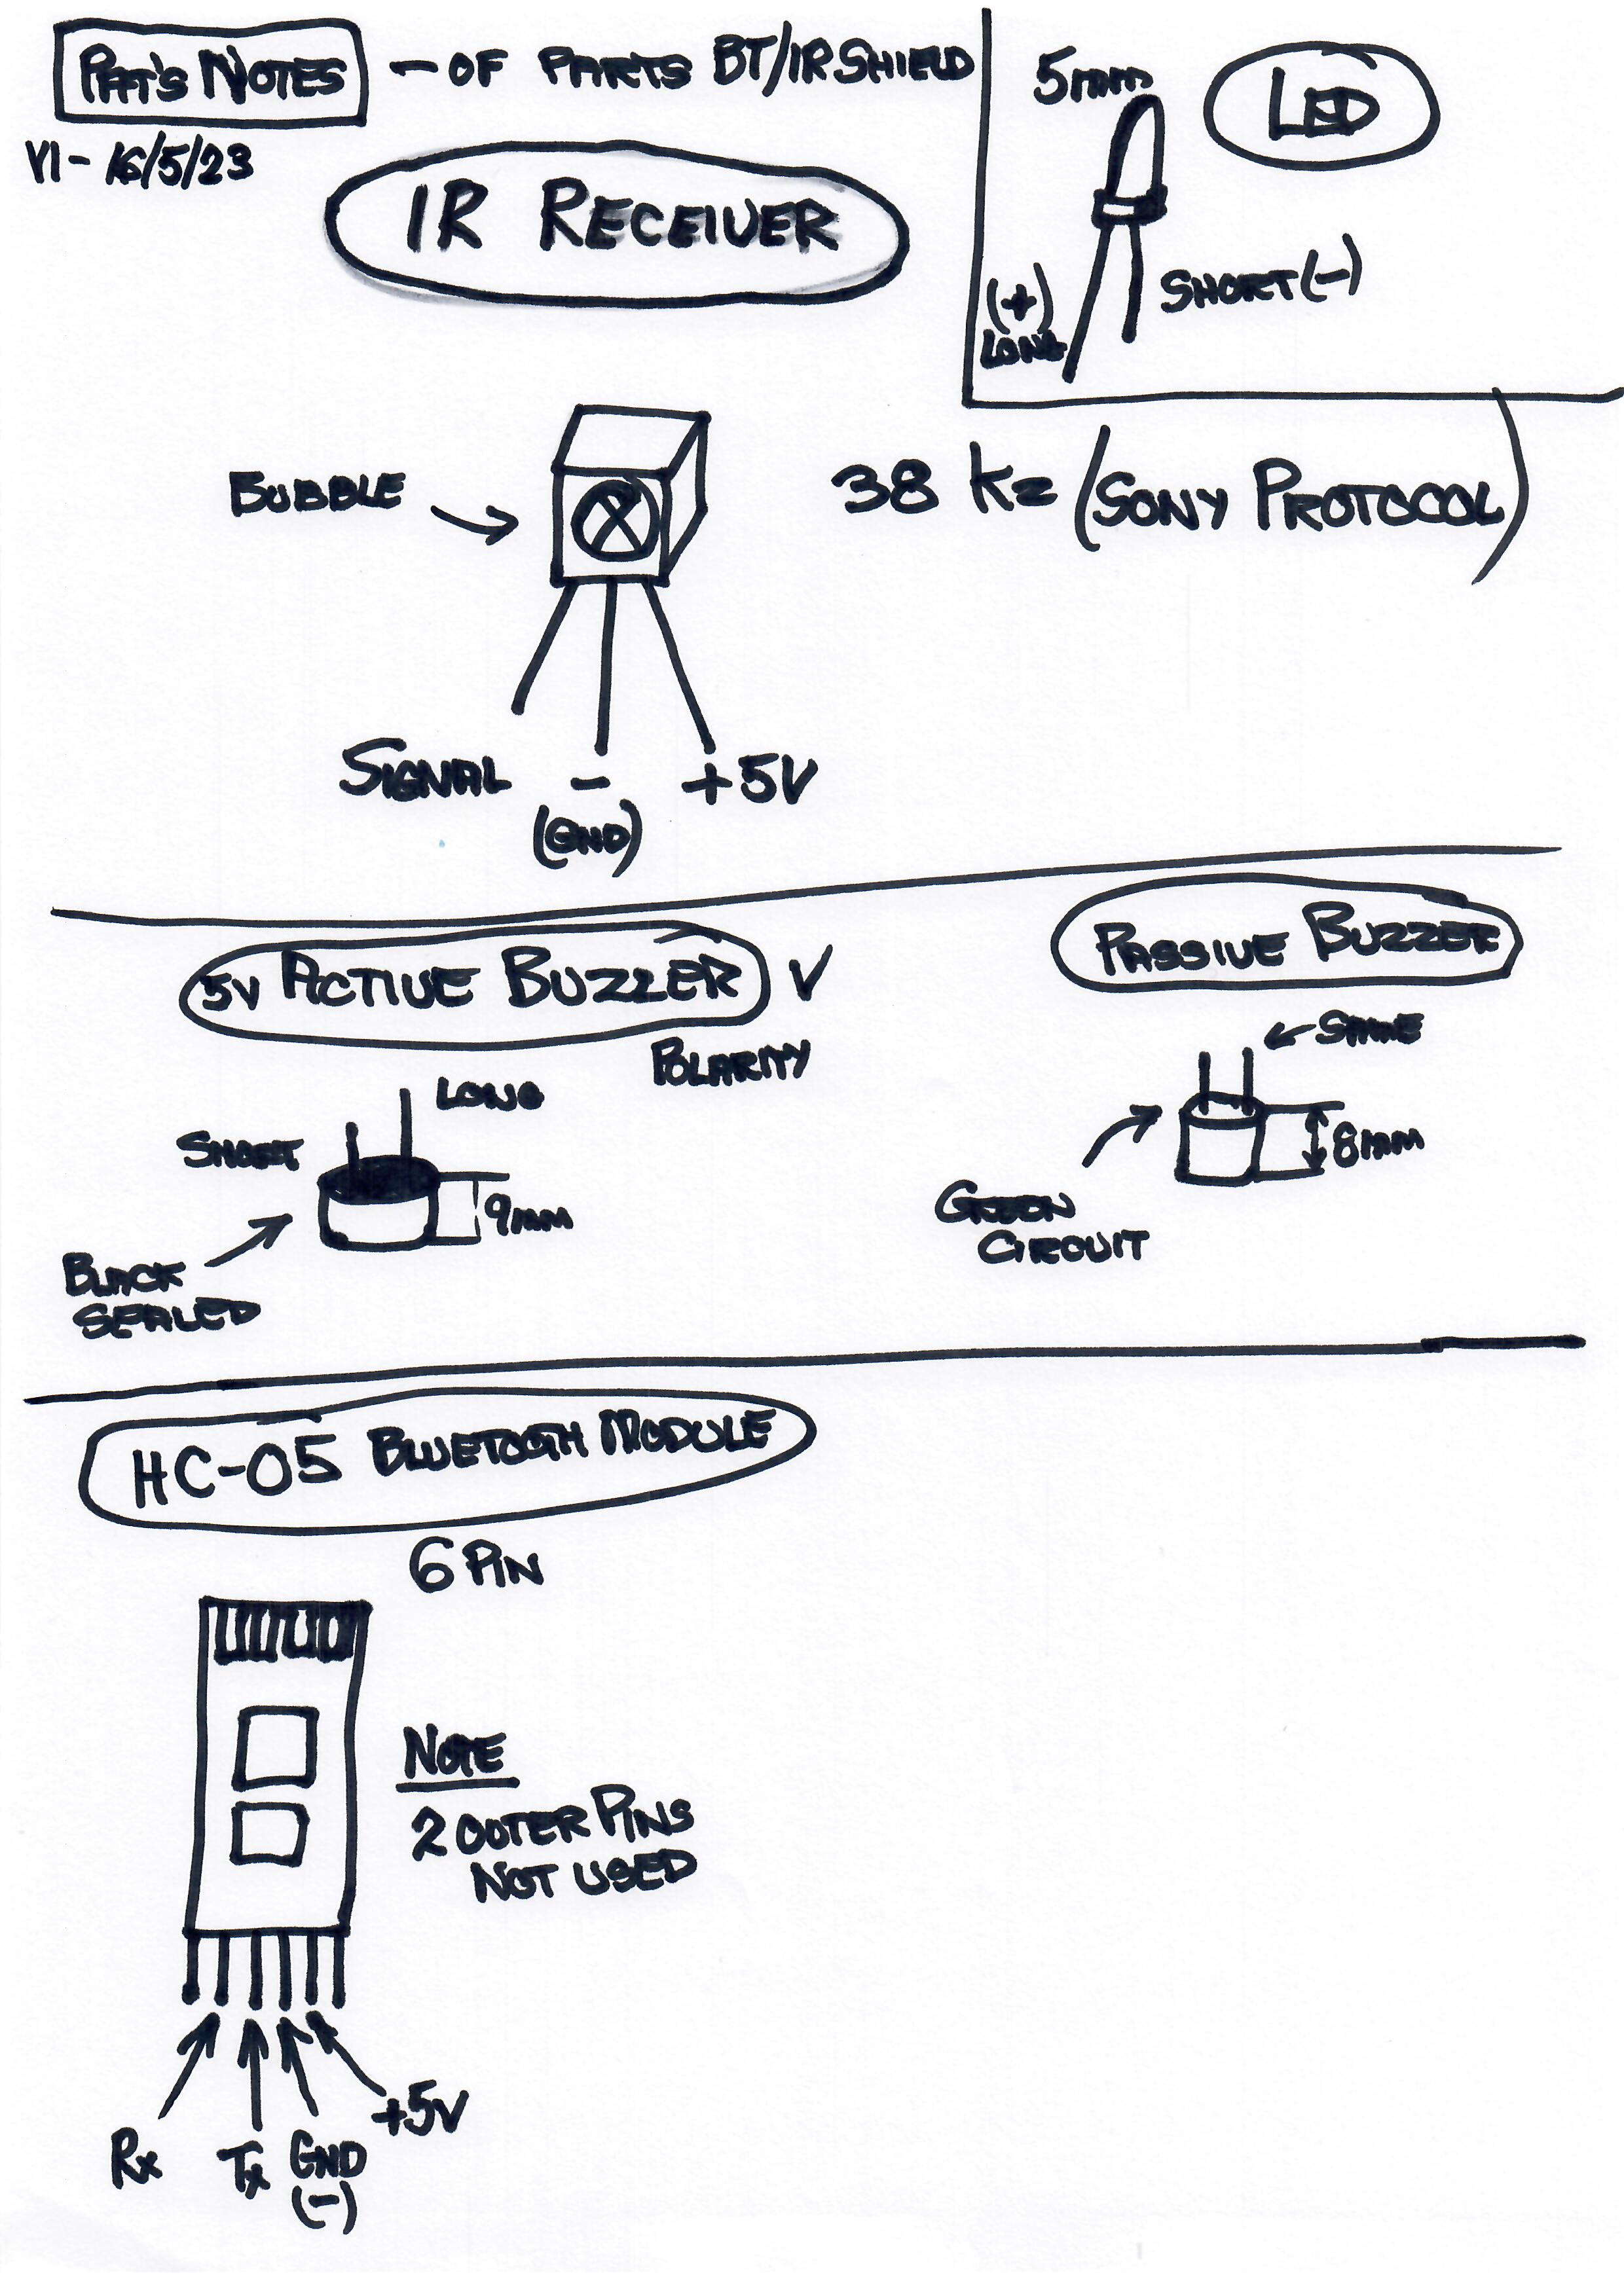 PAT'S NOTES - OF PARTS BT/IR SHIELD
V1 - 16/5/23
IR RECEIVER
5mm
LED
(+)
LONG
SHORT (-)
BUBBLE
38 Kz (SONY PROTOCOL)
SIGNAL - +5V
(GND)
5V ACTIVE BUZZER V
POLARITY
LONG
SHORT
9mm
BLACK
SEALED
PASSIVE BUZZER
SAME
8mm
GREEN
CIRCUIT
HC-05 BLUETOOTH MODULE
6 PIN
NOTE
2 OUTER PINS
NOT USED
Rx Tx GND +5V
(-)